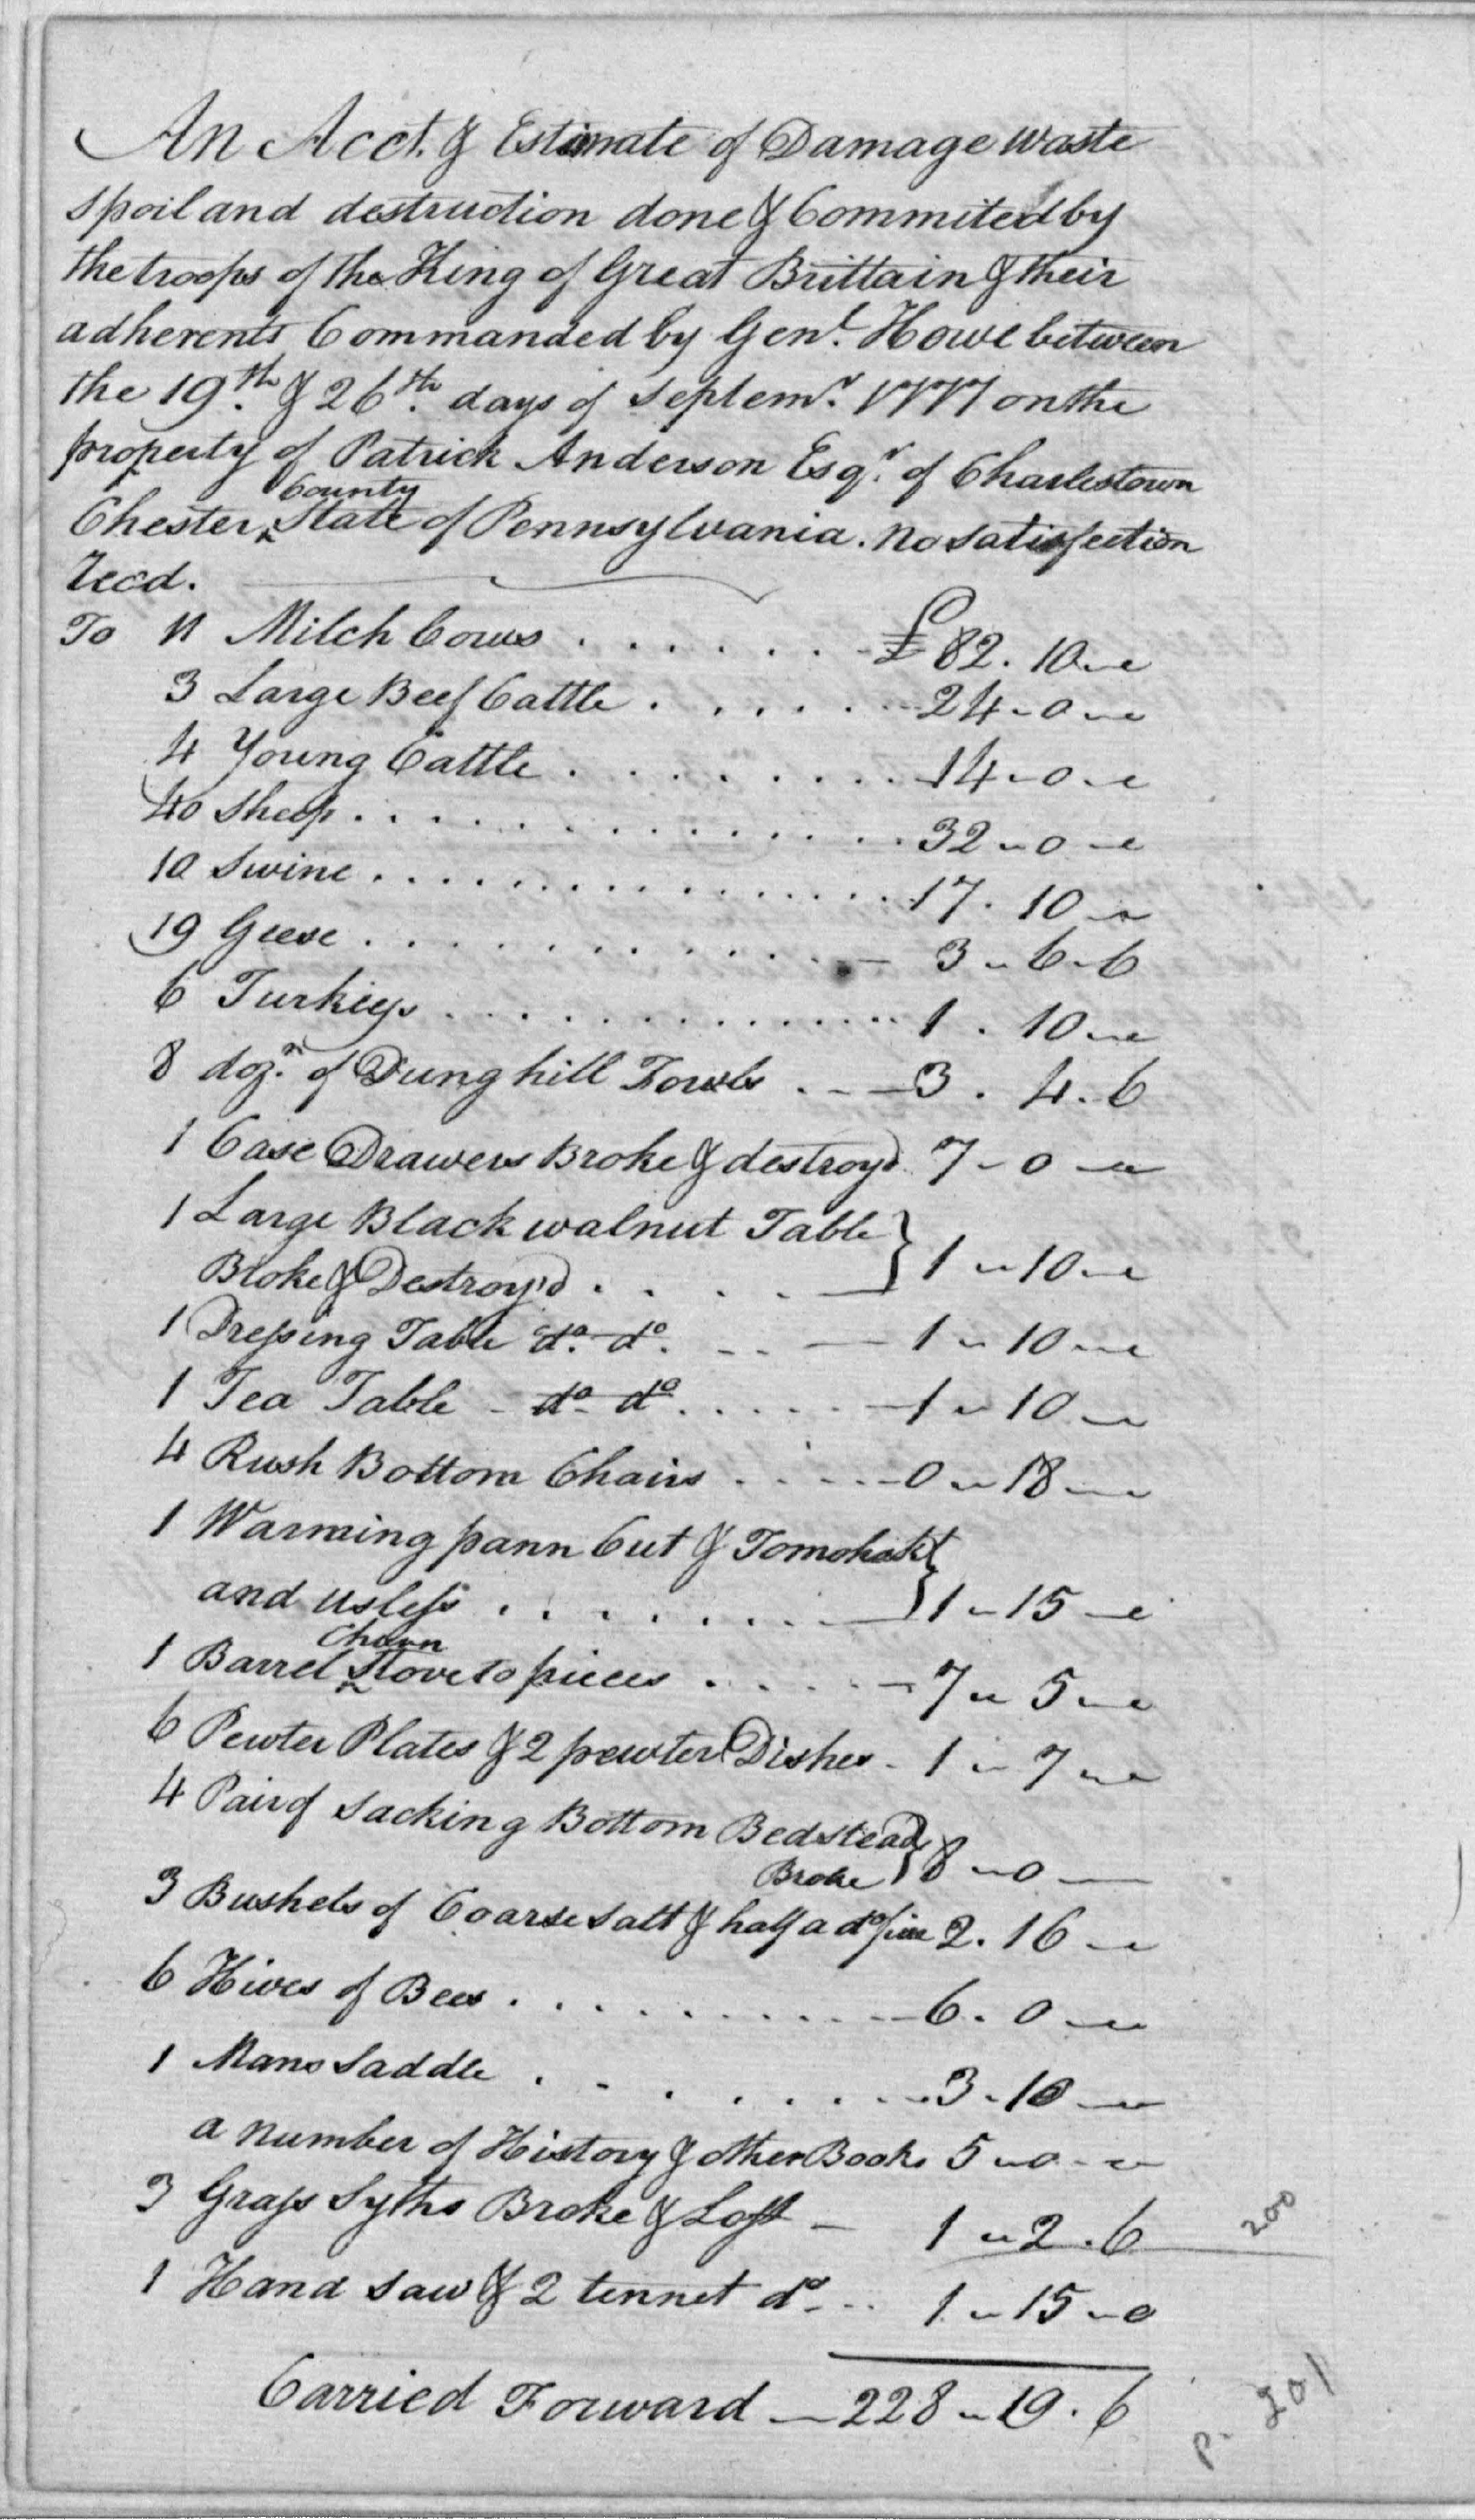 An Acct. & Estimate of Damage waste
spoil and destruction done & Commited by
the troops of the King of Great Brittain & their
adherents Commanded by Genl. Howe between
the 19th. & 26th. days of Septemr. 1777 on the
property of Patrick Anderson Esqr. of Charlestown
County
Chester ‸ State of Pennsylvania. no satisfection
Recd.
To 11 Milch Cows . . . . . . . £ 82. 10 " "
3 Large Beef Cattle . . . . . . 24 - 0 - "
4 Young Cattle . . . . . . . . . 14 - 0 - "
40 Sheep . . . . . . . . . . . . 32 " 0 - "
10 Swine . . . . . . . . . . . . 17. 10 - "
19 Geese . . . . . . . . . . . — 3 " 6 - 6
6 Turkieys . . . . . . . . . . . 1 . 10 - "
8 dozn. of Dung hill Fowls . - — 3 . 4 . 6
1 Case Drawers Broke & destroyd 7 - 0 - "
1 Large Black walnut Table
Broke & Destroy'd . . . . — } 1 " 10 - "
1 Dressing Table do. do. - - — 1 " 10 - "
1 Tea Table - do. do. . . . . - 1 " 10 - "
4 Rush Bottom Chairs . . . - 0 " 18 - "
1 Warming pann Cut & Tomohakt
and usless . . . . . . . — } 1 - 15 - "
Churn
1 Barrel ‸ Stove to pieces . . . . - 7 " 5 - "
6 Pewter Plates & 2 pewter Dishes - 1 " 7 - "
4 Pair of Sacking Bottom Bedsteads
Broke } 8 - 0 —
3 Bushels of Coarse salt & half a do fine 2. 16 - "
6 Hives of Bees . . . . . . . . . - 6. 0 - "
1 Mans Saddle . - . . . . . . 3 - 10 - "
a number of History & other Books 5 " 0 - "
3 Grass Syths Broke & Lost — 1 " 2 . 6
200
1 Hand saw & 2 tennet do. - - 1 " 15 " 0
Carried Forward — 228 " 19 . 6
p. 201